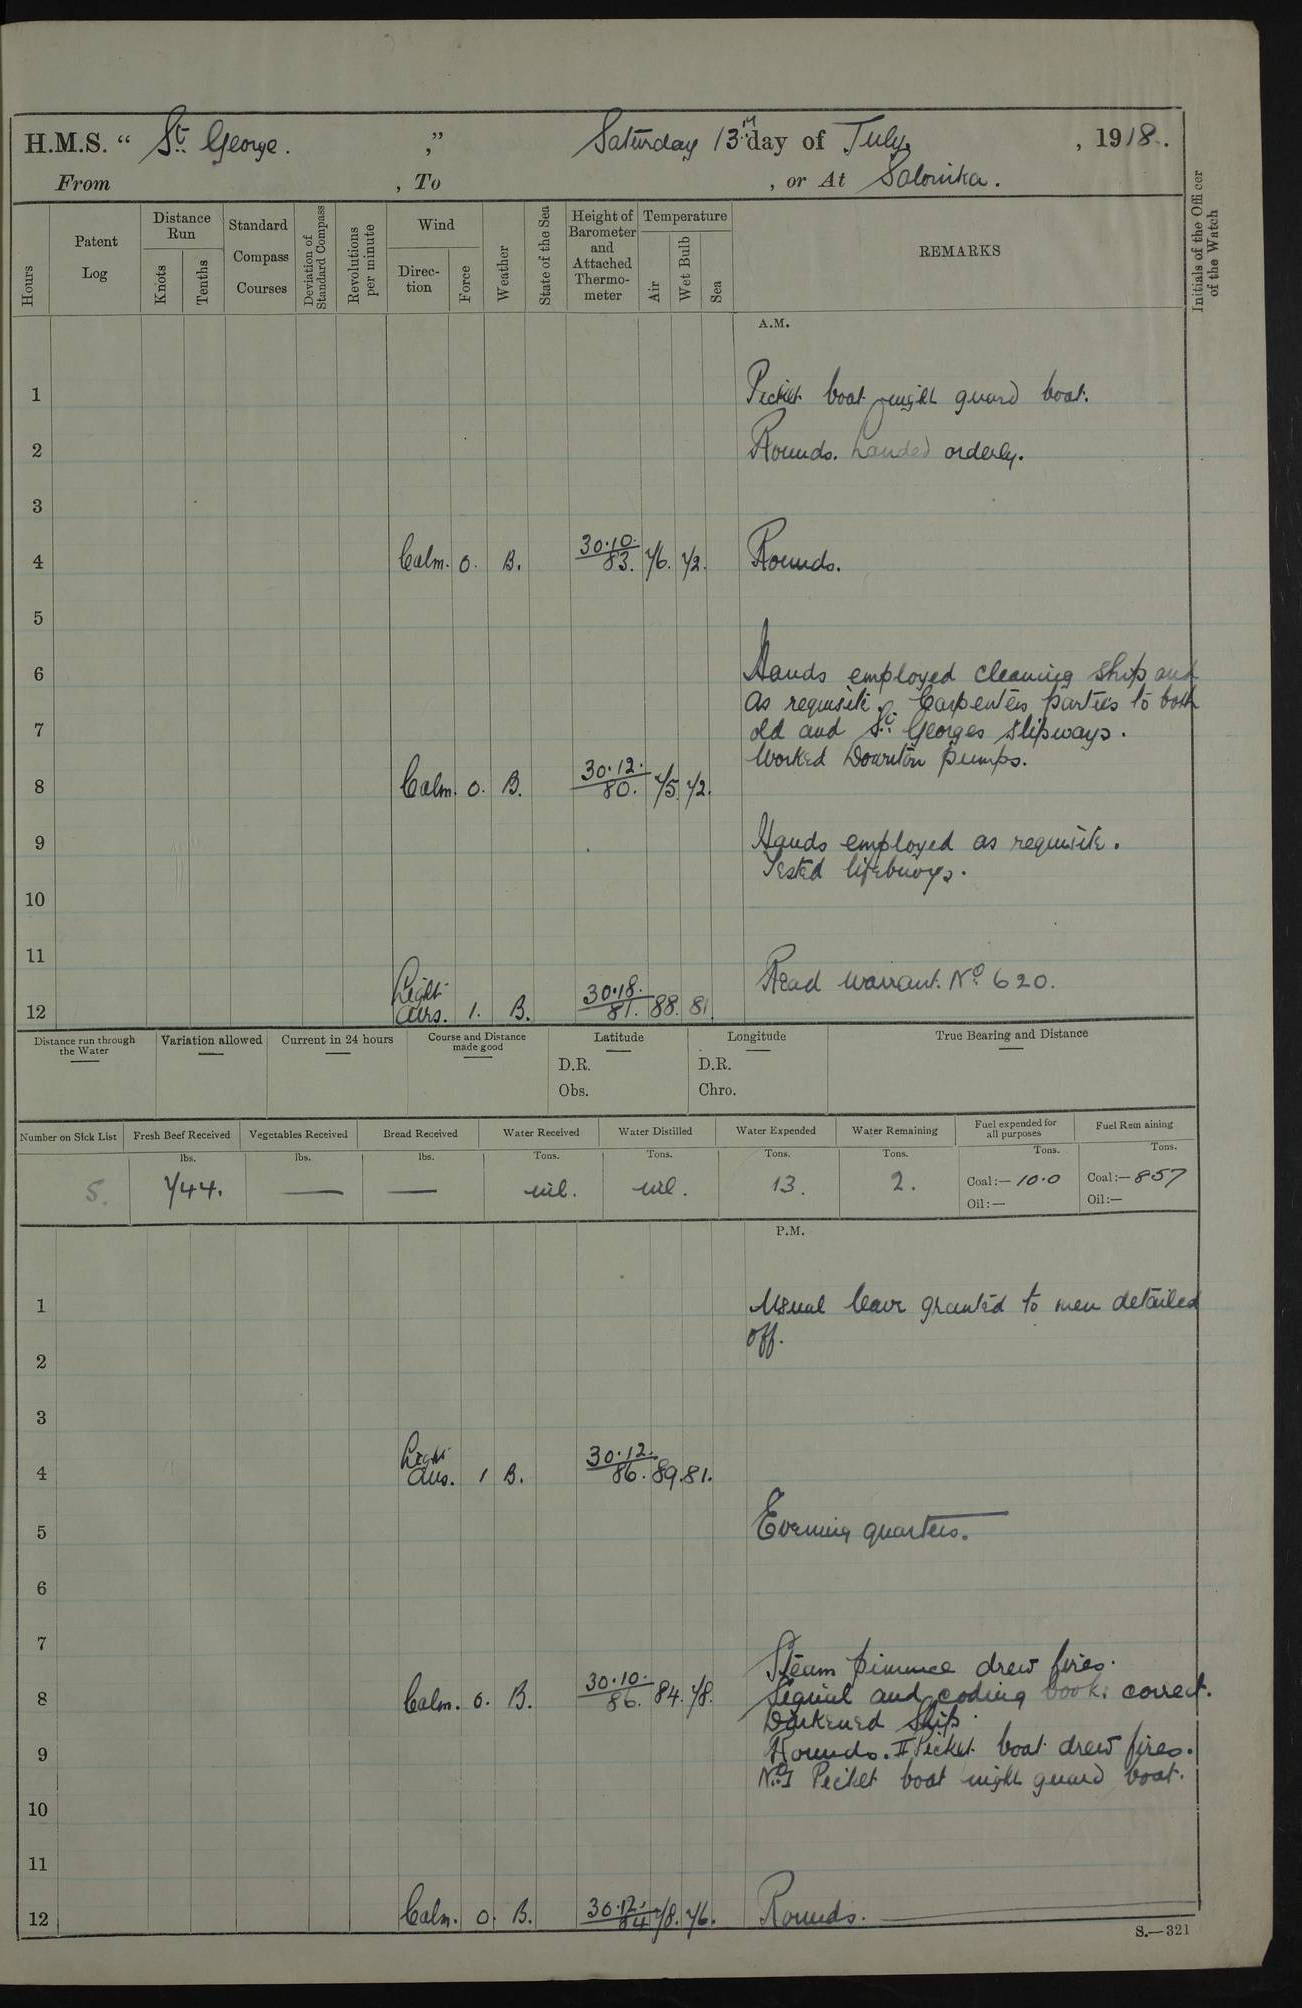 H.M.S. “ St. George. ,” Saturday 13th day of July, , 1918.
From , To , or At Salonika.
Hours
Patent Log
Distance Run
Knots
Tenths
Standard Compass Courses
Deviation of Standard Compass
Revolutions per minute
Wind
Direc-tion
Force
Weather
State of the Sea
Height of Barometer and Attached Thermo-meter
Temperature
Air
Wet Bulb
Sea
REMARKS
Initials of the Officer of the Watch
A.M.
1 Picket boat night guard boat.
2 Rounds. Landed orderly.
3
4 Calm. 0. B. 30.10. 83. 76. 72. Rounds.
5
6 Hands employed cleaning ship and
as requisite. Carpenters parties to both
7 old and St. Georges slipways.
Worked Downton pumps.
8 Calm. 0. B. 30.12. 80. 75. 72.
9 Hands employed as requisite.
Tested lifebuoys.
10
11
Read Warrant. No. 620.
12 Light airs. 1. B. 30.18. 81. 88. 81.
Distance run through the Water
Variation allowed
Current in 24 hours
Course and Distance made good
Latitude
D.R.
Obs.
Longitude
D.R.
Chro.
True Bearing and Distance
Number on Sick List
Fresh Beef Received
Vegetables Received
Bread Received
Water Received
Water Distilled
Water Expended
Water Remaining
Fuel expended for all purposes
Fuel Remaining
lbs. lbs. lbs. Tons. Tons. Tons. Tons. Tons. Tons.
5. 744. — — nil. nil. 13. 2. Coal:— 10.0 Coal:— 857
Oil:— Oil:—
P.M.
1 Usual leave granted to men detailed
off.
2
3
4 Light airs. 1 B. 30.12. 86. 89. 81.
5 Evening quarters.
6
7
Steam pinnace drew fires.
8 Calm. 0. B. 30.10. 86. 84. 78. Signal and coding books correct.
Darkened Ship.
9 Rounds. II Picket boat drew fires.
No. I Picket boat night guard boat.
10
11
12 Calm. 0. B. 30.12. 84 78. 76. Rounds.
S.—321